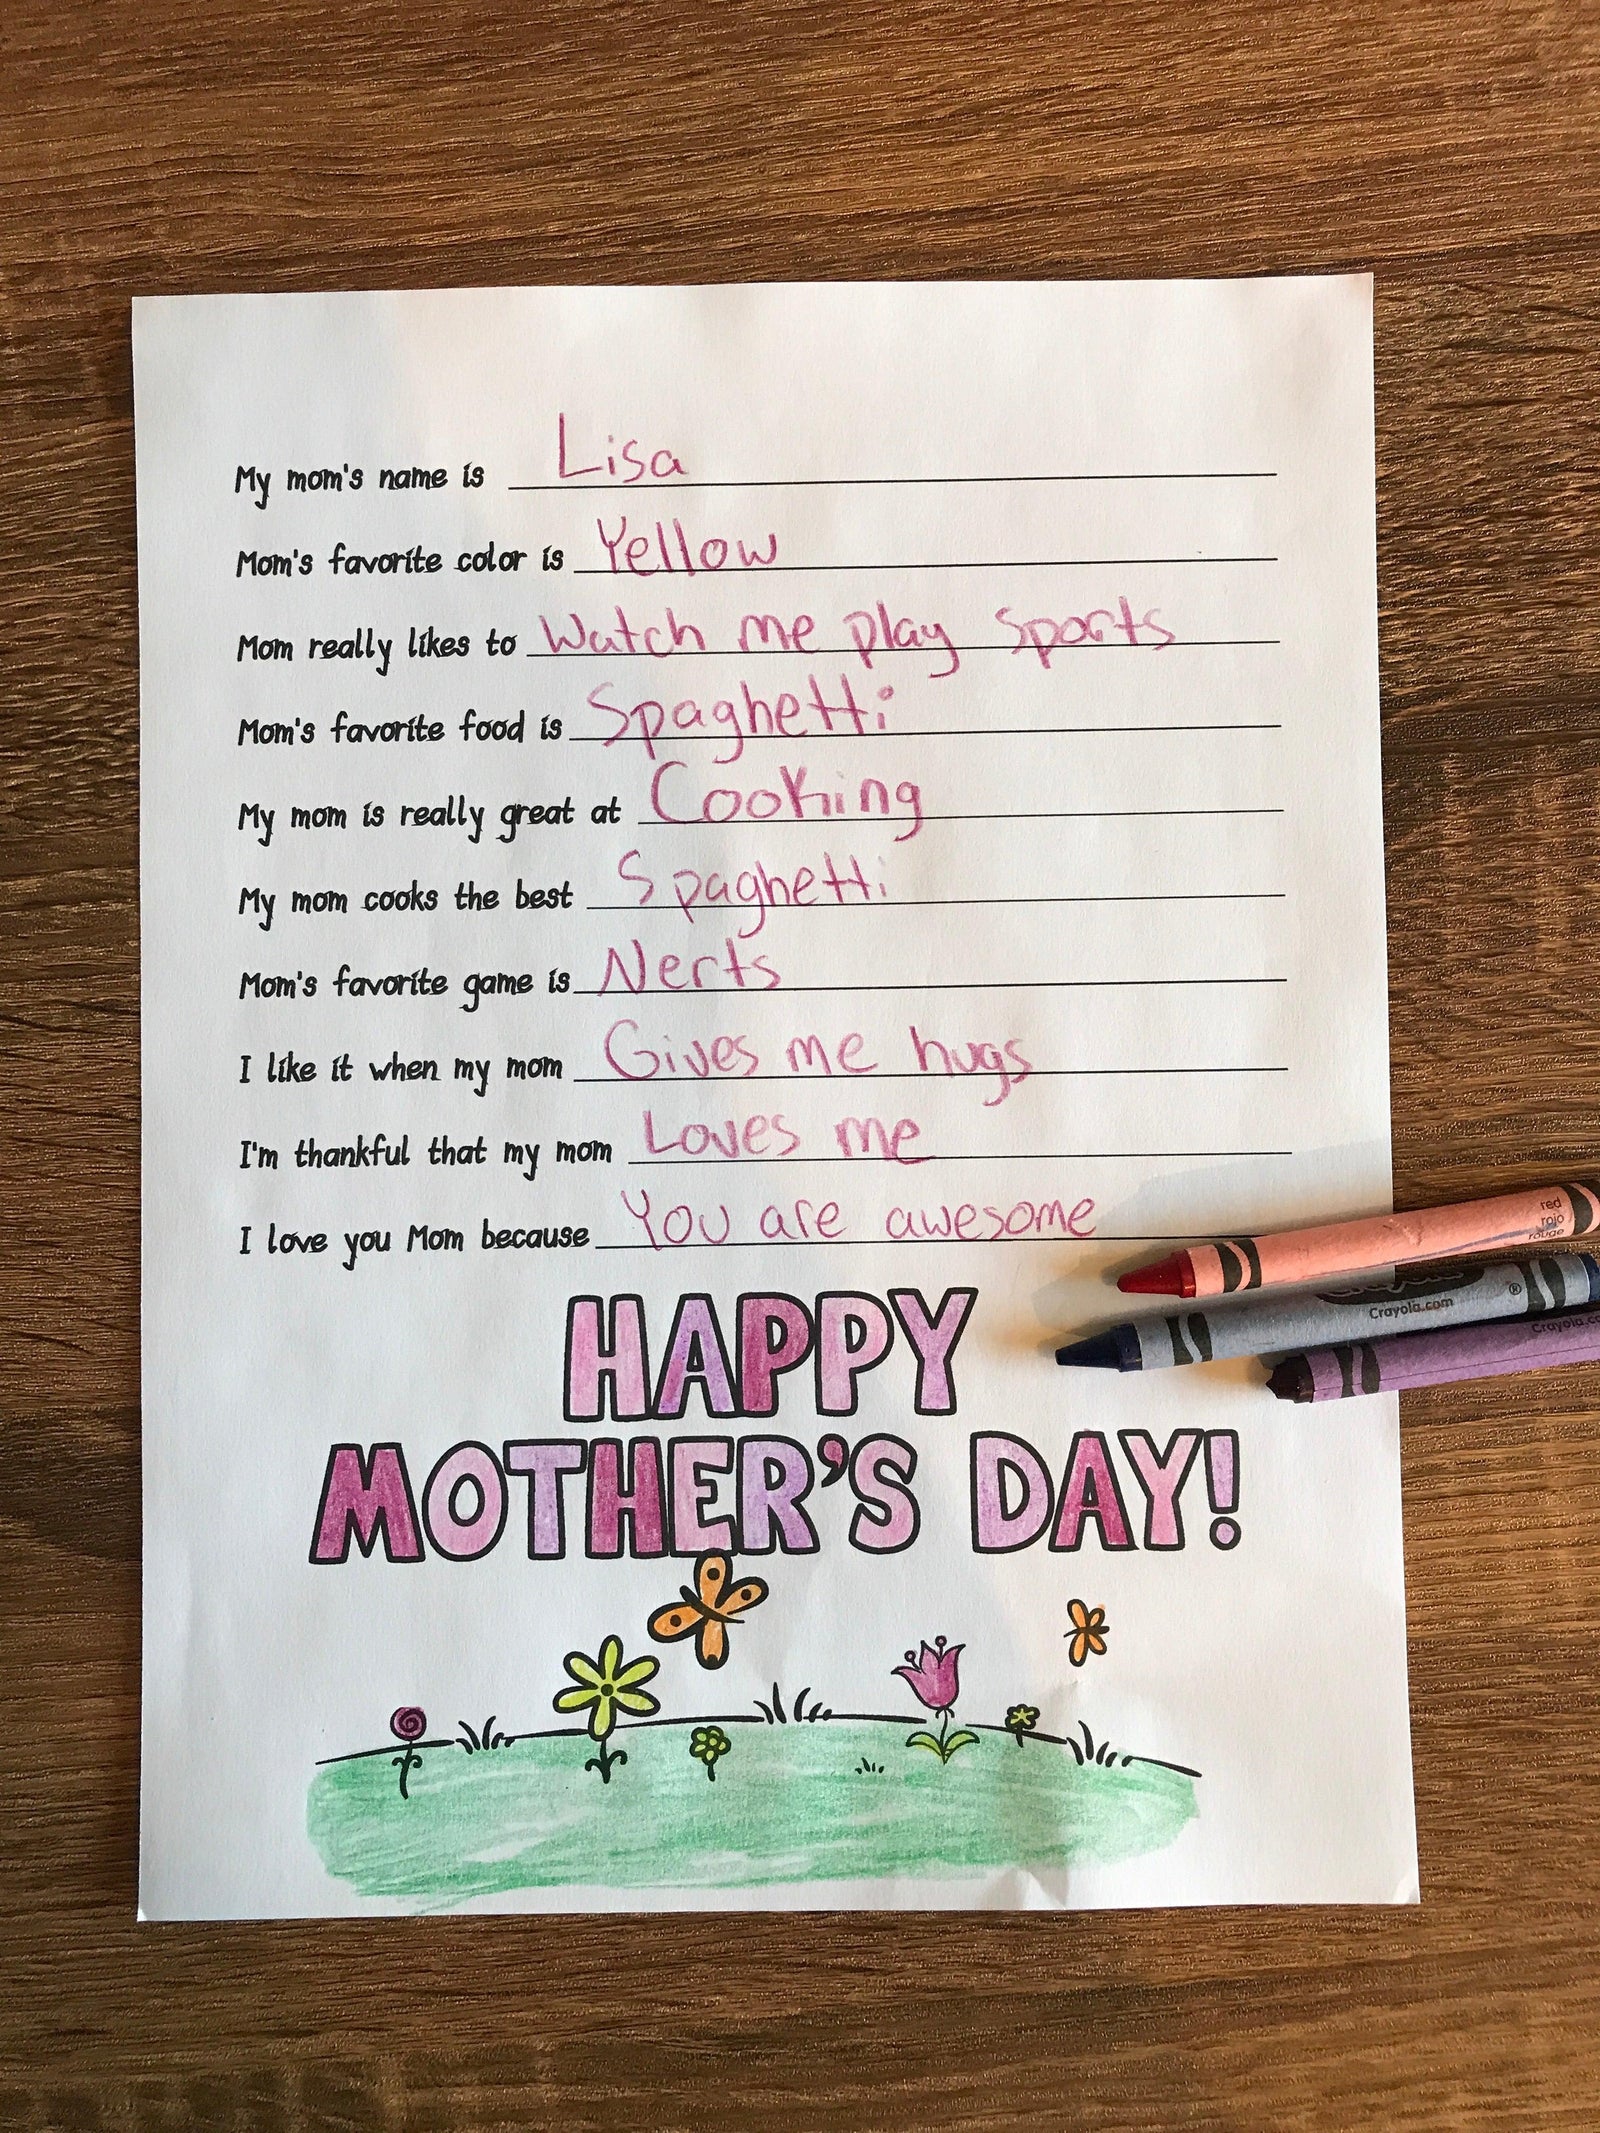 My mom's name is Lisa
Mom's favorite color is Yellow
Mom really likes to Watch me play sports
Mom's favorite food is Spaghetti
My mom is really great at Cooking
My mom cooks the best Spaghetti
Mom's favorite game is Nerts
I like it when my mom Gives me hugs
I'm thankful that my mom Loves me
I love you Mom because You are awesome
red
rojo
rouge
Crayola.com
®
HAPPY
MOTHER'S DAY!